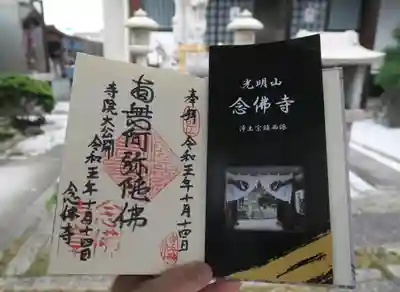 奉拝 令和五年十月十四日
南無阿弥陀佛
寺院大公開 令和五年十月十四日
念佛寺
光明山
念佛寺
浄土宗鎮西派